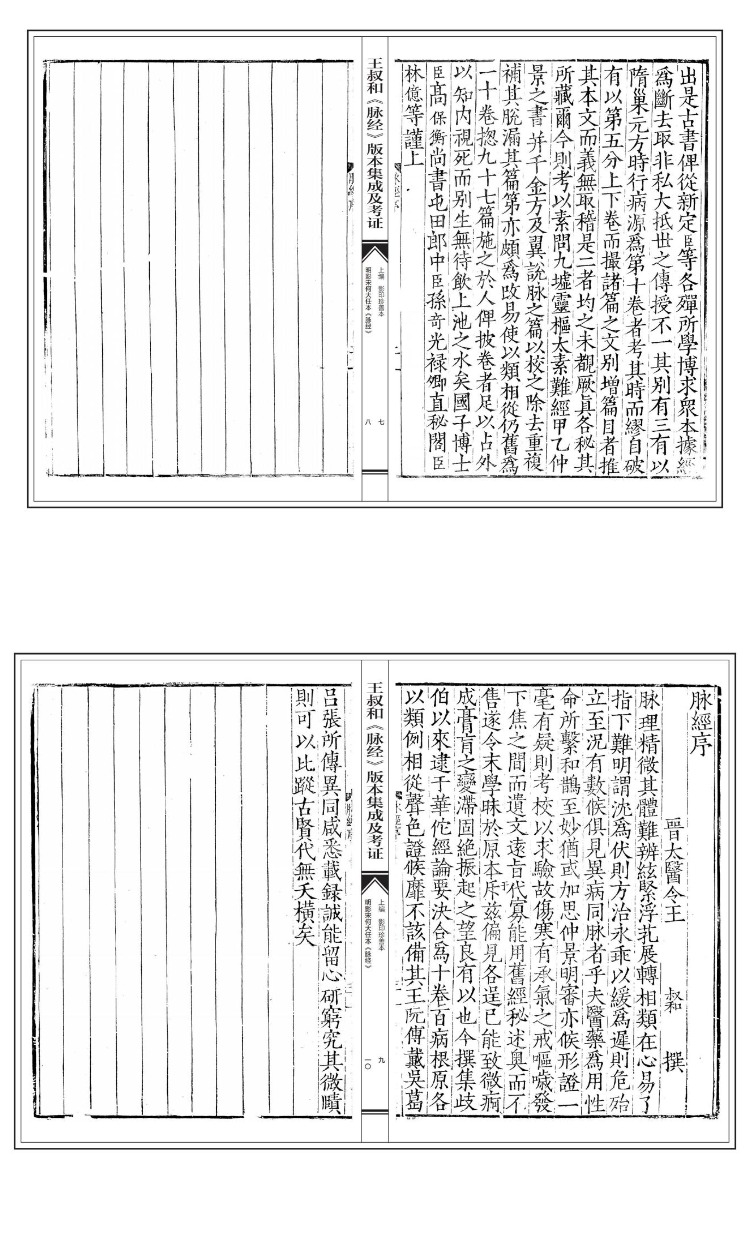 出是古書俾從新定臣等各殫所學博求衆本據經
爲斷去取非私大抵世之傳授不一其別有三有以
隋巢元方時行病源爲第十卷者考其時而繆自破
有以第五分上下卷而撮諸篇之文別增篇目者推
其本文而義無取稽是二者均之未覩厥眞各秘其
所藏爾今則考以素問九墟靈樞太素難經甲乙仲
景之書并千金方及翼說脉之篇以校之除去重複
補其脫漏其篇第亦頗爲改易使以類相從仍舊爲
一十卷揔九十七篇施之於人俾披卷者足以占外
以知内視死而別生無待飲上池之水矣國子博士
臣高保衡尚書屯田郎中臣孫奇光禄卿直秘閣臣
林億等謹上
王叔和《脉经》版本集成及考证
上编 影印珍善本
明影宋何大任本《脉经》
七
八
脉經序
晉太醫令王 叔和 撰
脉理精微其體難辨絃緊浮芤展轉相類在心易了
指下難明謂沈爲伏則方治永乖以緩爲遲則危殆
立至況有數候俱見異病同脉者乎夫醫藥爲用性
命所繫和鵲至妙猶或加思仲景明審亦候形證一
毫有疑則考校以求驗故傷寒有承氣之戒嘔噦發
下焦之間而遺文遠旨代寡能用舊經秘述奧而不
售遂令末學昧於原本斥茲偏見各逞已能致微痾
成膏肓之變滯固絶振起之望良有以也今撰集歧
伯以來逮于華佗經論要決合爲十卷百病根原各
以類例相從聲色證候靡不該備其王阮傅戴吳葛
王叔和《脉经》版本集成及考证
上编 影印珍善本
明影宋何大任本《脉经》
九
一〇
吕張所傳異同咸悉載録誠能留心研窮究其微賾
則可以比蹤古賢代無夭橫矣